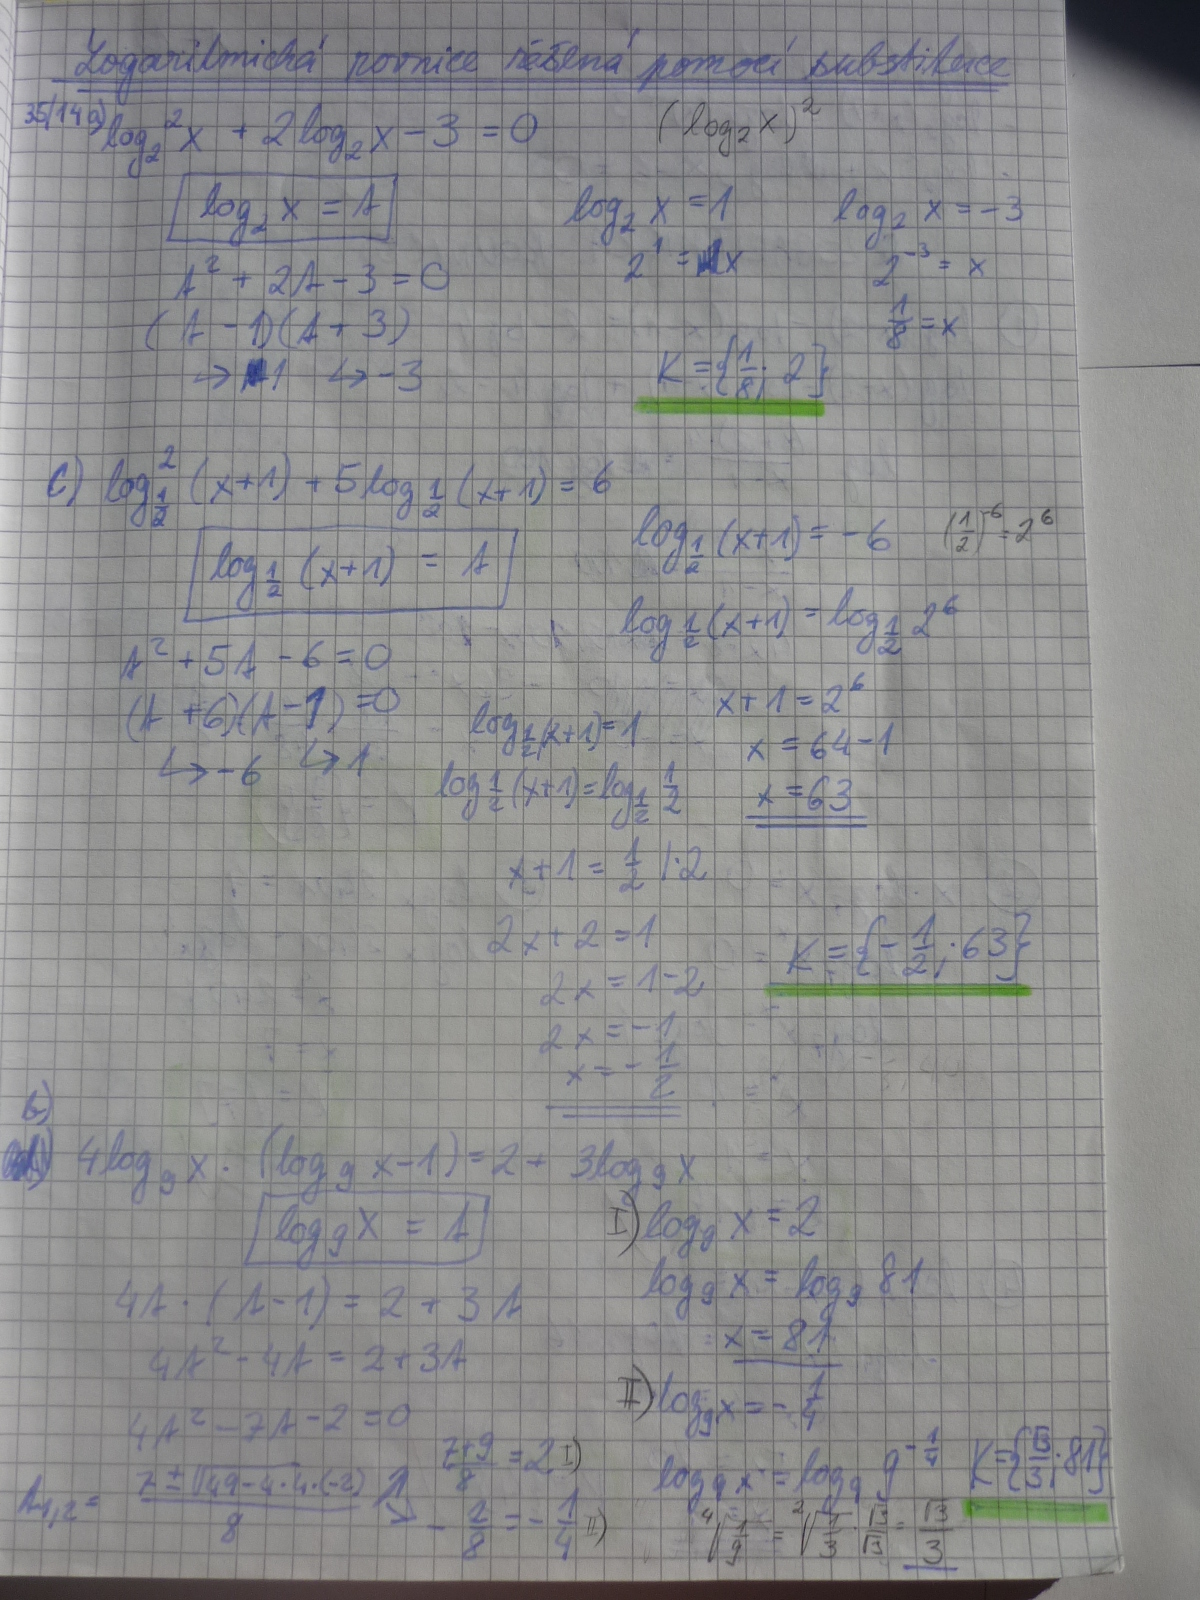 Logaritmická rovnice řešená pomocí substituce
35/14a) log₂²x + 2log₂x - 3 = 0
(log₂x)²
log₂x = A
A² + 2A - 3 = 0
(A - 1)(A + 3)
↳ 1 ↳ -3
log₂x = 1
2¹ = x
log₂x = -3
2⁻³ = x
1/8 = x
K = {1/8; 2}
c) log²_{1/2}(x+1) + 5log_{1/2}(x+1) = 6
log_{1/2}(x+1) = A
A² + 5A - 6 = 0
(A + 6)(A - 1) = 0
↳ -6 ↳ 1
log_{1/2}(x+1) = -6
(1/2)⁻⁶ = 2⁶
log_{1/2}(x+1) = log_{1/2} 2⁶
x+1 = 2⁶
x = 64-1
x = 63
log_{1/2}(x+1) = 1
log_{1/2}(x+1) = log_{1/2} 1/2
x+1 = 1/2 /·2
2x+2 = 1
2x = 1-2
2x = -1
x = -1/2
K = {-1/2; 63}
b)
4log₉x · (log₉x-1) = 2 + 3log₉x
log₉x = A
4A · (A-1) = 2 + 3A
4A² - 4A = 2+3A
4A² - 7A - 2 = 0
A₁,₂ = (7 ± √(49-4·4·(-2)))/8
(7+9)/8 = 2 I)
-2/8 = -1/4 II)
I) log₉x = 2
log₉x = log₉81
x = 81
II) log₉x = -1/4
log₉x = log₉ 9^{-1/4}
⁴√(1/9) = ²√(1/3) · √3/√3 = √3/3
K = {√3/3; 81}